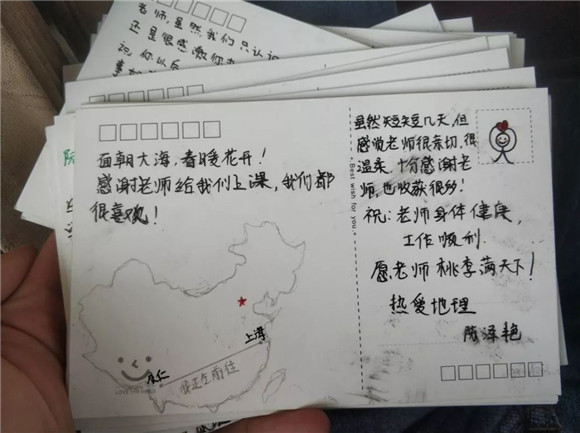 老师,虽然我们只认识
还是很感激你
祝你以后
面朝大海,春暖花开!
感谢老师给我们上课,我们都
很喜欢!
上海
永仁
我正在前往
Best wish for you
虽然短短几天,但
感觉老师很亲切,很
温柔,十分感谢老
师,也收获很多!
祝:老师身体健康,
工作顺利.
愿老师桃李满天下!
热爱地理